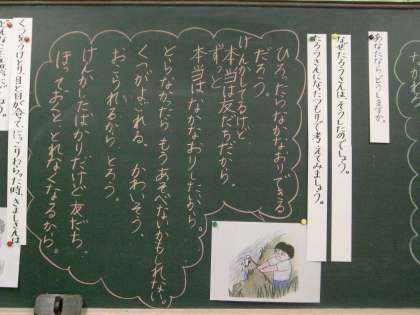 あなたなら、どうしますか。
なぜたろうさんは、そうしたのでしょう。
たろうさんになったつもりで考えてみましょう。
ひろったらなかなおりできる
だろう。
けんかしてるけど
本当は友だちだから。
ずっと
本当はなかなおりしたいから。
とらなかったら もうあそべないかもしれない。
くつがよごれる。 かわいそう。
おこられるから、とろう。
けんかしたばかりだけど友だち。
ほっておくと とれなくなるから。